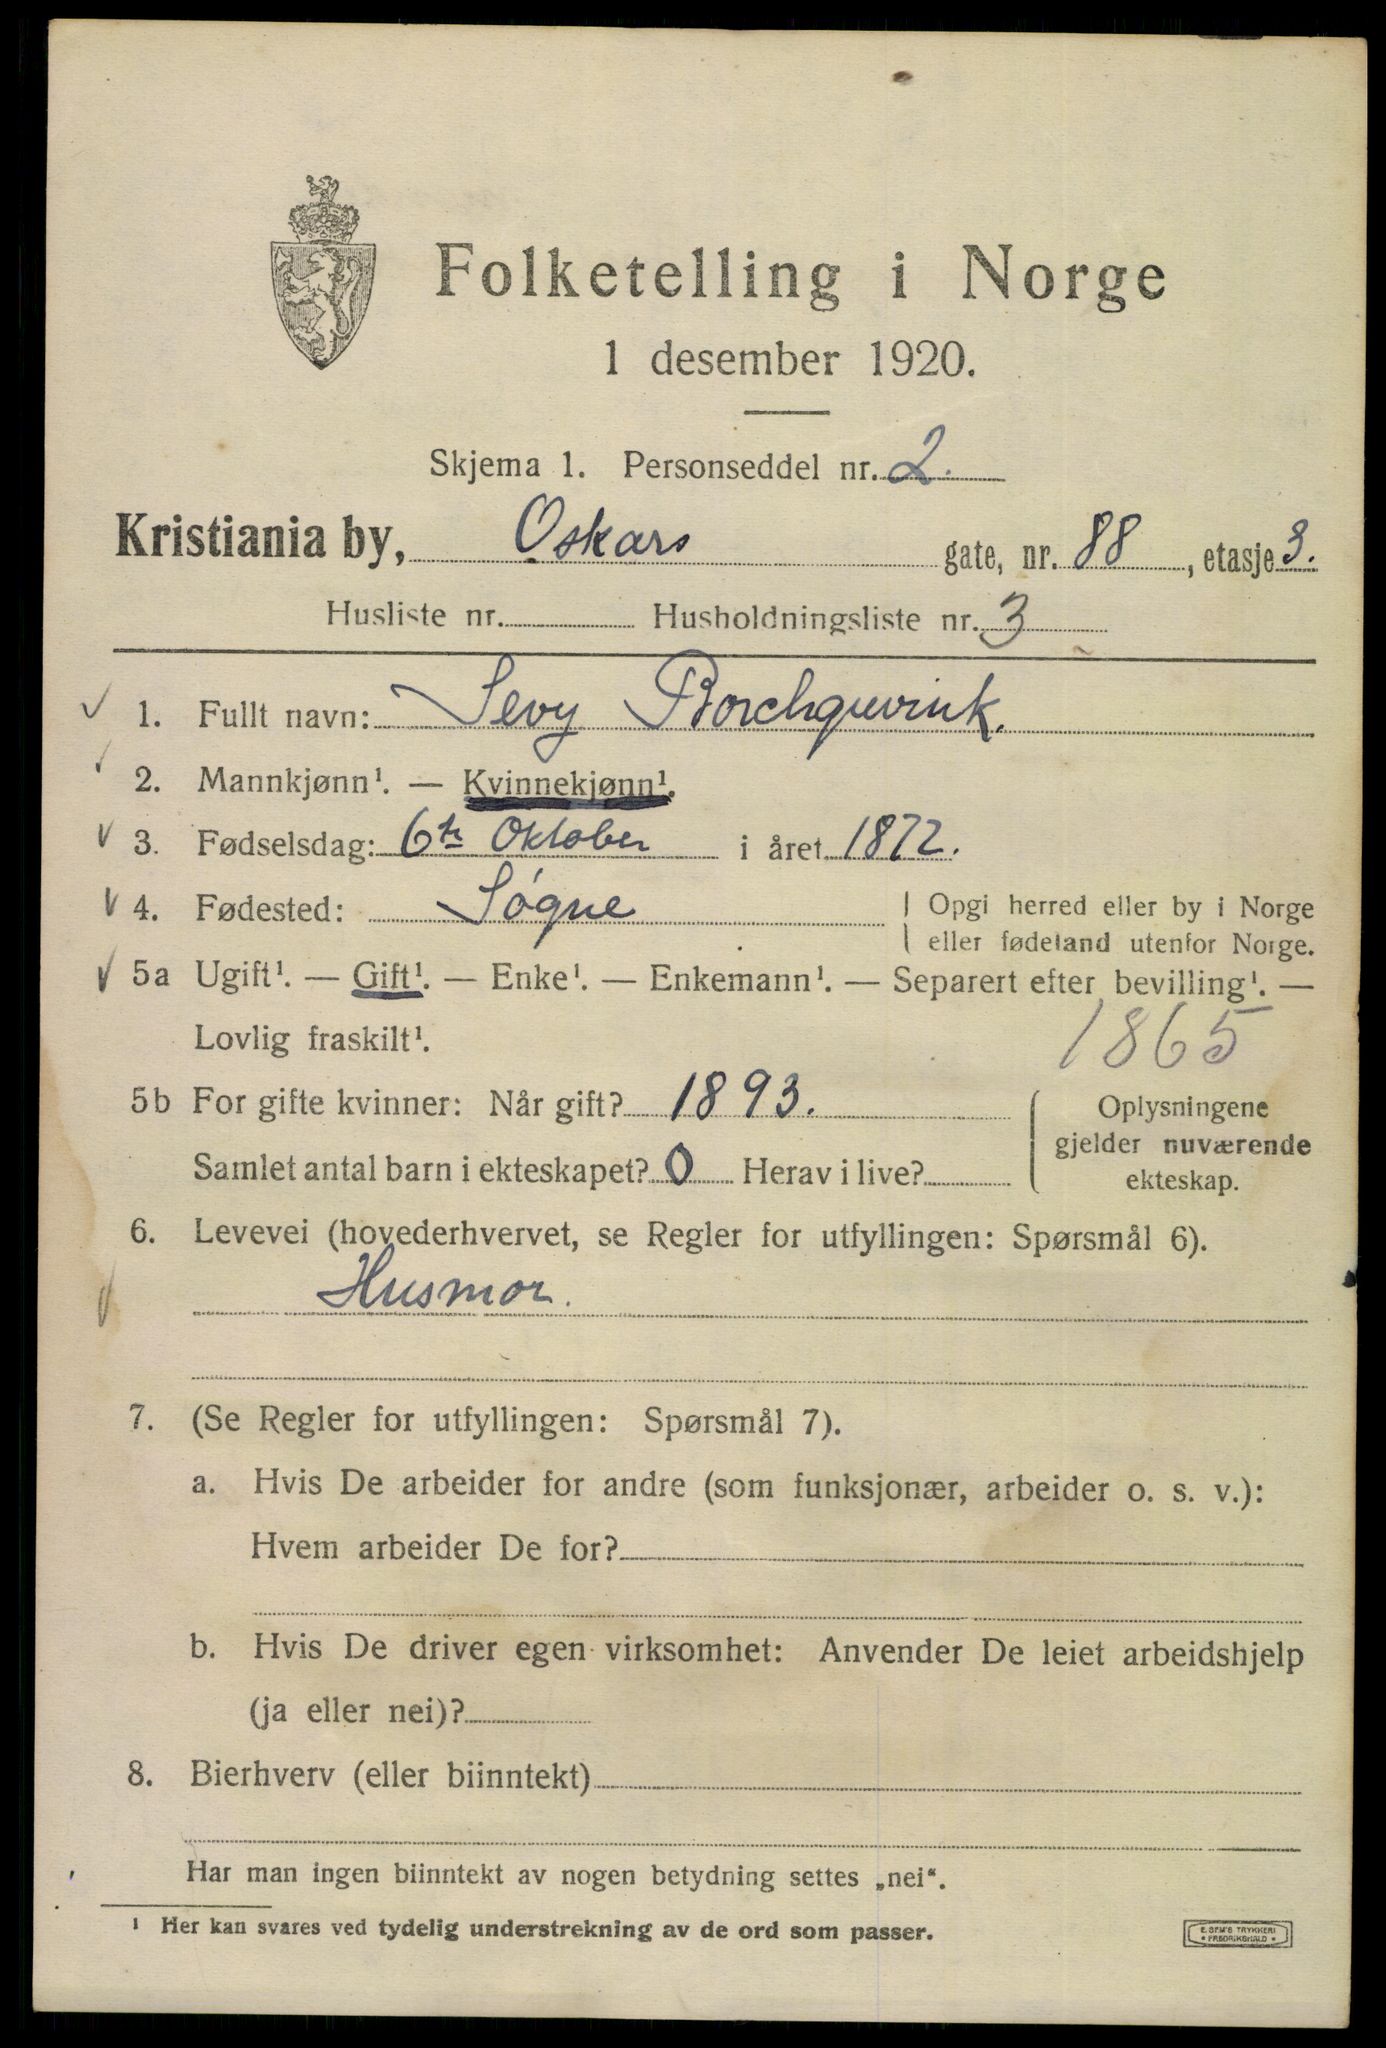 Folketelling i Norge
1 desember 1920.
Skjema 1. Personseddel nr. 2.
Kristiania by, Oskars gate, nr. 88, etasje 3.
Husliste nr. Husholdningsliste nr. 3
1. Fullt navn: Sevy Borchgrevink.
2. Mannkjønn¹. — Kvinnekjønn¹.
3. Fødselsdag: 6te Oktober i året 1872.
4. Fødested: Søgne
Opgi herred eller by i Norge
eller fødeland utenfor Norge.
5a Ugift¹. — Gift¹. — Enke¹. — Enkemann¹. — Separert efter bevilling¹. —
Lovlig fraskilt¹.
1865
5b For gifte kvinner: Når gift? 1893.
Samlet antal barn i ekteskapet? 0 Herav i live?
Oplysningene
gjelder nuværende
ekteskap.
6. Levevei (hovederhvervet, se Regler for utfyllingen: Spørsmål 6).
Husmor.
7. (Se Regler for utfyllingen: Spørsmål 7).
a. Hvis De arbeider for andre (som funksjonær, arbeider o. s. v.):
Hvem arbeider De for?
b. Hvis De driver egen virksomhet: Anvender De leiet arbeidshjelp
(ja eller nei)?
8. Bierhverv (eller biinntekt)
Har man ingen biinntekt av nogen betydning settes „nei“.
¹ Her kan svares ved tydelig understrekning av de ord som passer.
E. SEM'S TRYKKERI
• FREDRIKSHALD •